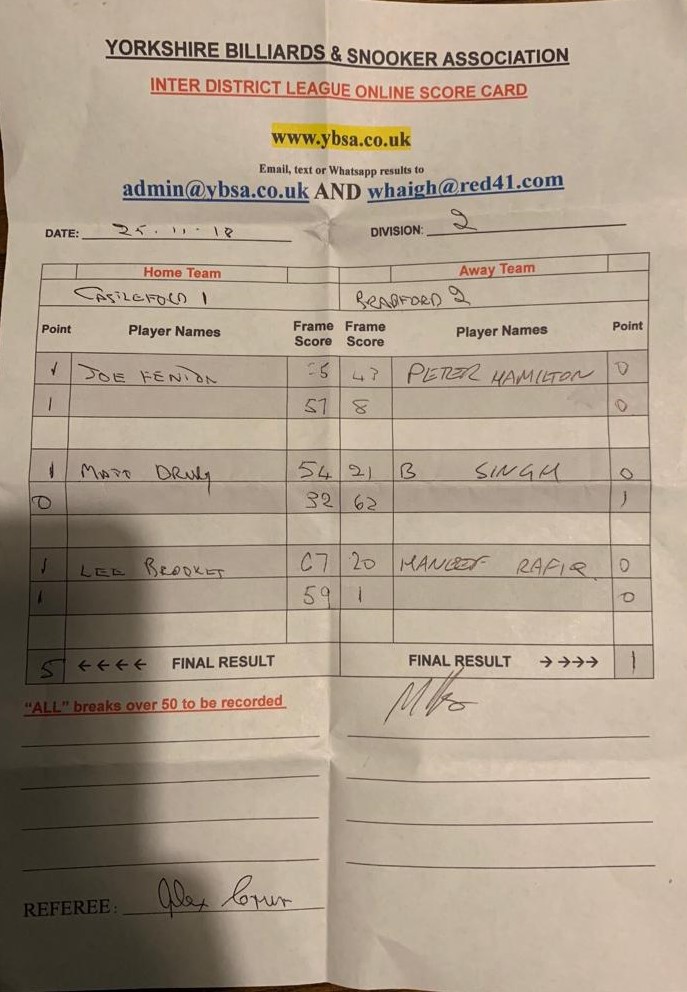 YORKSHIRE BILLIARDS & SNOOKER ASSOCIATION
INTER DISTRICT LEAGUE ONLINE SCORE CARD
www.ybsa.co.uk
Email, text or Whatsapp results to
admin@ybsa.co.uk AND whaigh@red41.com
DATE: 25.11.18 DIVISION: 2
Home Team Away Team
CASTLEFORD 1 BRADFORD 2
Point Player Names Frame Score Frame Score Player Names Point
1 JOE 43 PETER HAMILTON 0
1 57 8 0
1 MATT 54 21 B SINGH 0
0 32 62 1
1 LEE 67 20 RAFIQ 0
1 59 1 0
5 ←←←← FINAL RESULT FINAL RESULT →→→→ 1
"ALL" breaks over 50 to be recorded
REFEREE: Alex